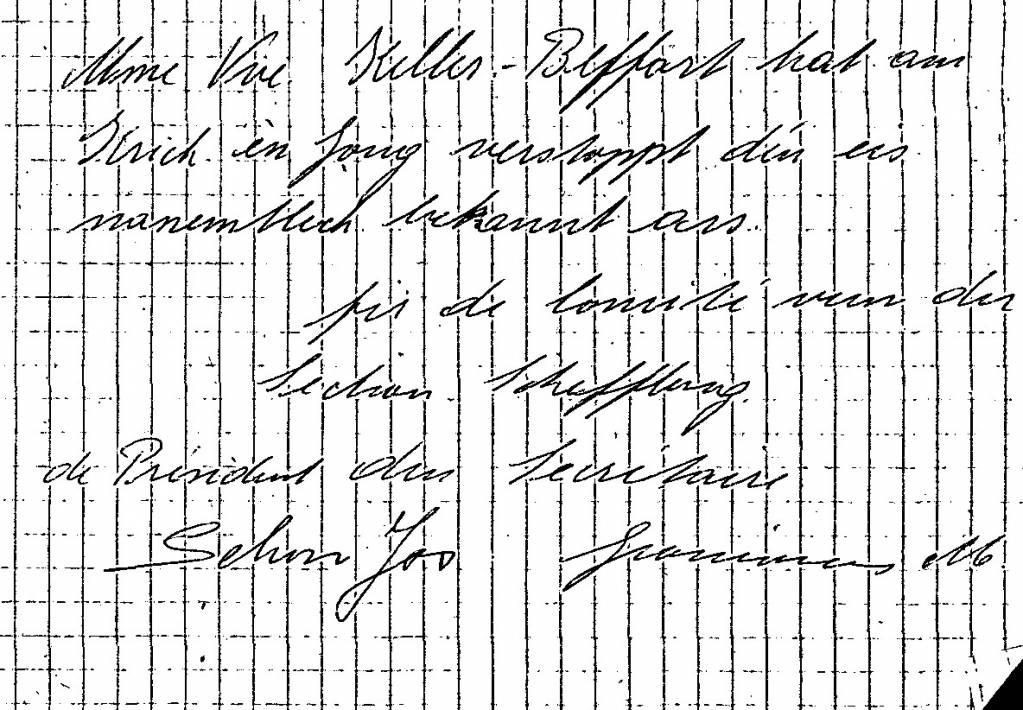 Mme Vve Keller-Beffort hat am
Krich èn Jong verstoppt dén eis
nanemtlech bekannt ass.
fir de Comité vun der
Section Schëfflang.
de Président den Secrétaire
Schon Jos M.